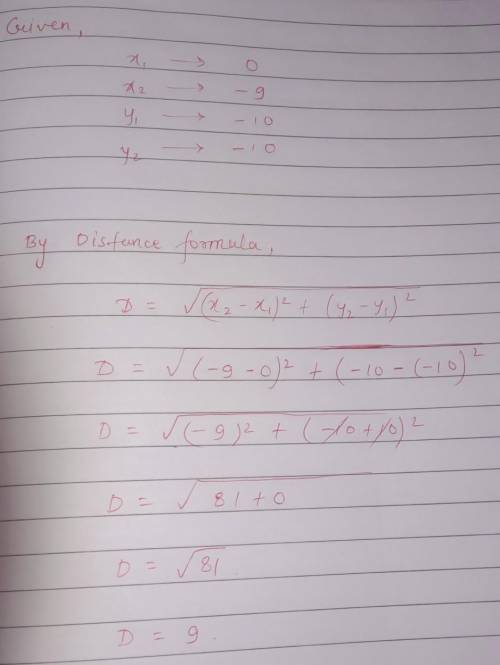 Given,
x₁ → 0
x₂ → -9
y₁ → -10
y₂ → -10
By Distance formula,
D = √(x₂ - x₁)² + (y₂ - y₁)²
D = √(-9 - 0)² + (-10 - (-10)²
D = √(-9)² + (-10 + 10)²
D = √81 + 0
D = √81
D = 9.